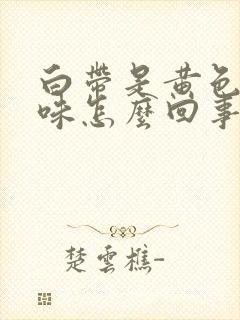 白帶是黃色
味怎麼回事
楚雲樵-